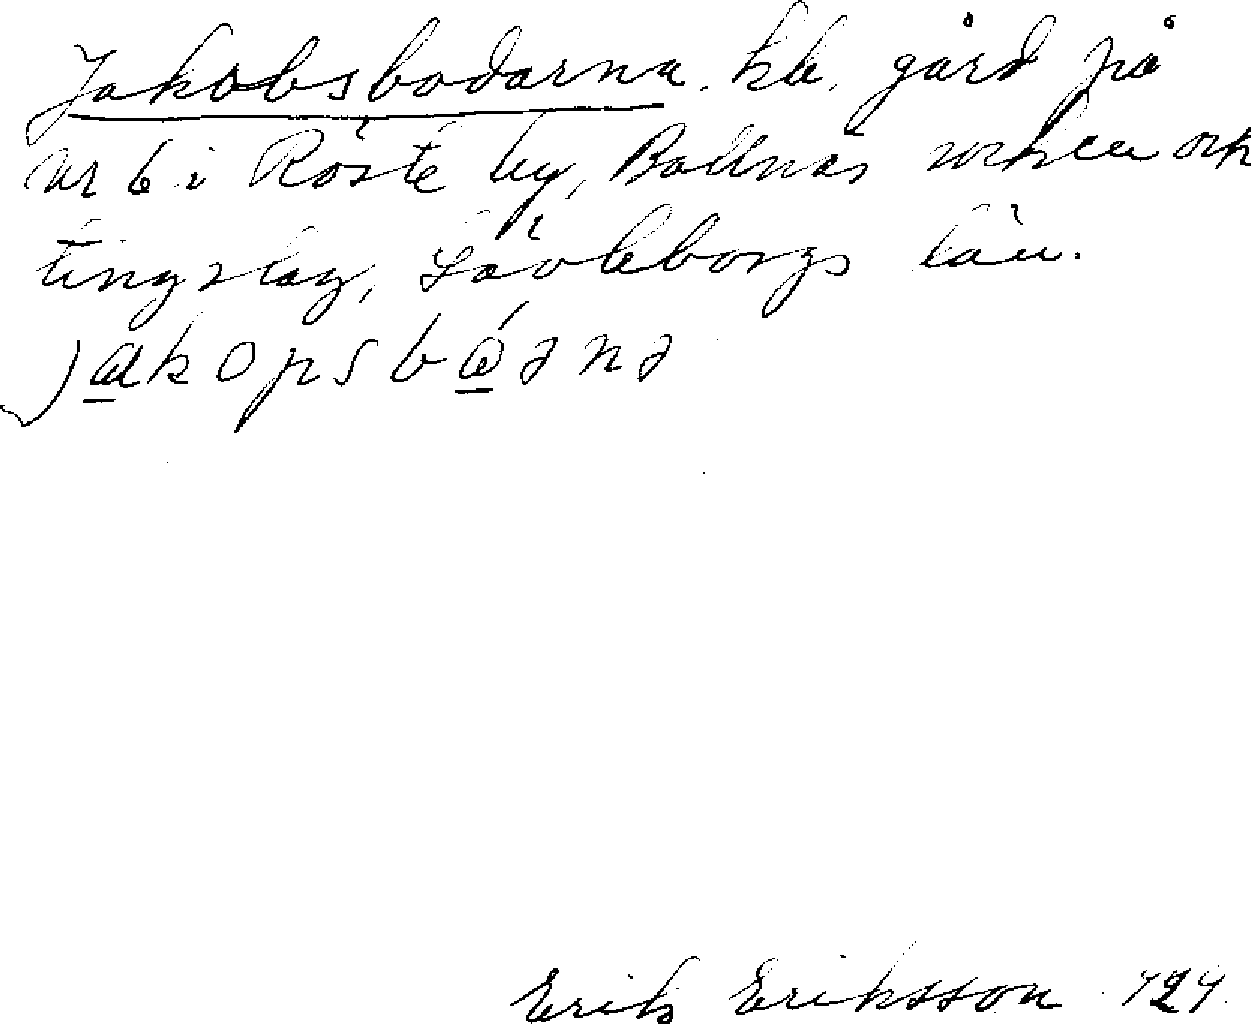 Jakobsbodarna, kk. gård på
nr 6 i Röste by, Bollnäs socken och
tingslag, Gävleborgs län.
Erik Eriksson 1924.